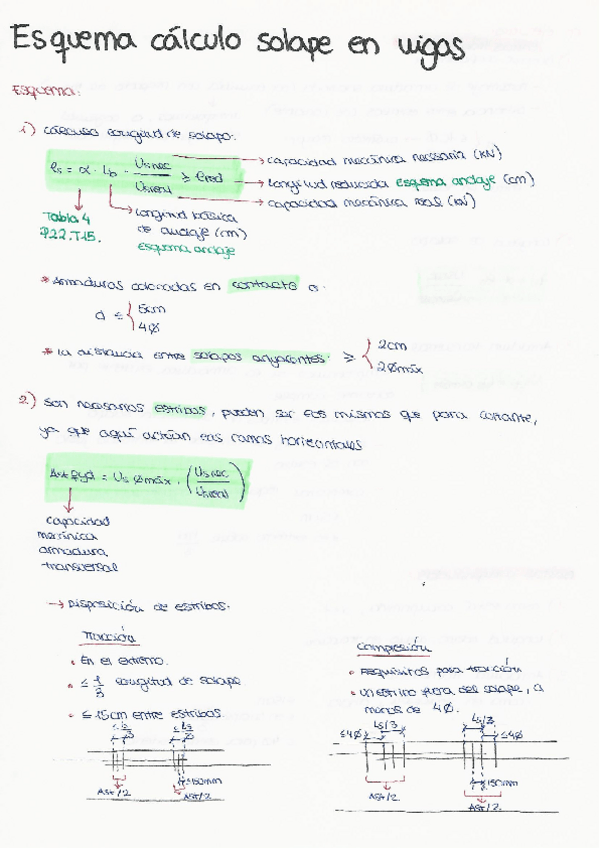 Esquema cálculo solape en vigas
Esquema:
1) cálculo longitud de solapo:
ls = α · lb · Us nec / Us real ≥ l red
→ capacidad mecánica necesaria (KN)
→ longitud reducida esquema anclaje (cm)
→ capacidad mecánica real (KN)
Tabla 4
P.22. T.15.
→ longitud básica
de anclaje (cm)
esquema anclaje
* Armaduras colocadas en contacto o:
d ≤ { 5cm
4Ø
* La distancia entre solapos adyacentes: ≥ { 2cm
2Ømáx
2) son necesarios estribos, pueden ser los mismos que para cortante,
ya que aquí actúan las ramas horizontales
Ast fyd = Us Ømáx · (Us nec / Us real)
capacidad
mecánica
armadura
transversal
→ Disposición de estribos:
Tracción
• En el extremo.
• ≤ 1/3 longitud de solape
• ≤ 15cm entre estribos
≤ ls/3 ≤ ls/3
≤150mm
Ast/2 Ast/2
Compresión
• Requisitos para tracción
• un estribo fuera del solape, a
menos de 4Ø.
≤4Ø ls/3 ls/3 ≤4Ø
≤150mm
Ast/2 Ast/2